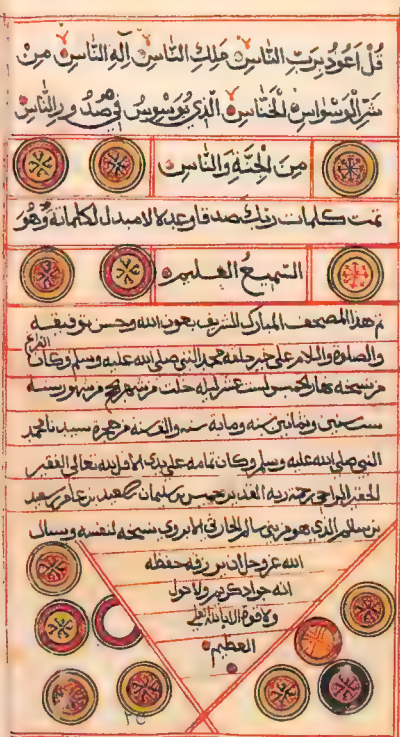 قُلْ اَعُوذُ بِرَبِّ النَّاسِ مَلِكِ النَّاسِ اِلَهِ النَّاسِ مِنْ
شَرِّ الْوَسْوَاسِ الْخَنَّاسِ الَّذِي يُوَسْوِسُ فِي صُدُورِ النَّاسِ
مِنَ الْجِنَّةِ وَالنَّاسِ
تمت كلمات ربك صدقا وعدلا لا مبدل لكلماته وهو
السَّمِيعُ الْعَلِيمُ
تم هذا المصحف المبارك الشريف بعون الله وحسن توفيقه
والصلوة والسلام على خير خلقه محمد النبي صلى الله عليه وسلم وكان الفراغ
من نسخه نهار الخميس لست عشر ليلة خلت من شهر من شهور سنة
ست سنين وثمانين سنه ومائة سنه والف سنه من هجرة سيدنا محمد
النبي صلى الله عليه وسلم وكان تمامه على يد الاقل لله تعالى الفقير
الحقير الراجي رحمة ربه بن سلمان بن سعيد بن عامر بن سعيد
بن سالم الذي هو من بني بيده نسخه لنفسه ويسال
الله عز وجل ان يرزقه حفظه
انه جواد كريم ولا حول
ولا قوة الا بالله العلي
العظيم